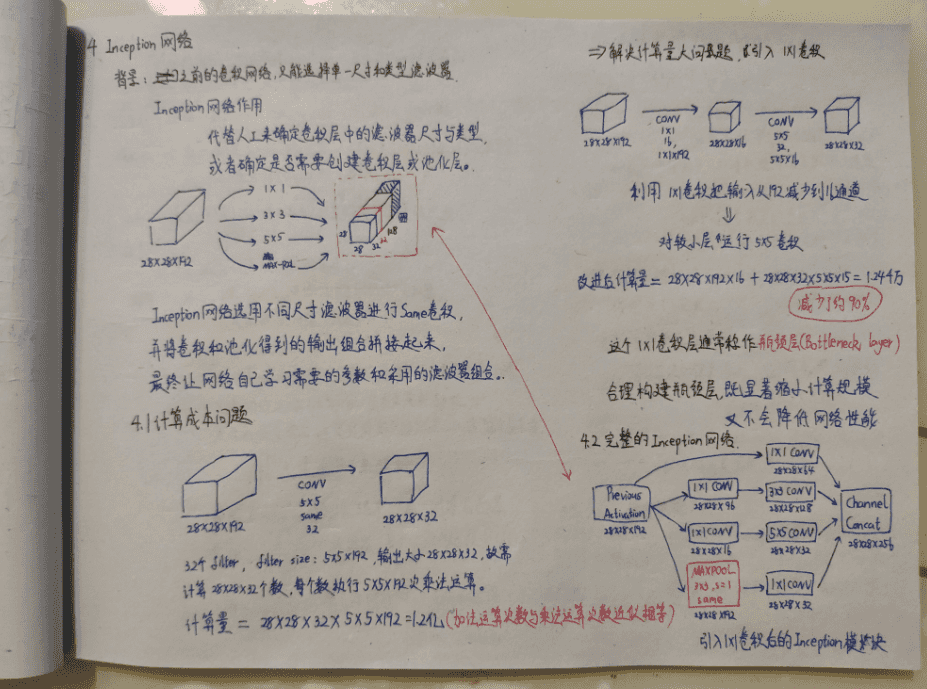 4 Inception 网络
背景：之前的卷积网络,只能选择单一尺寸和类型滤波器.
Inception网络作用
代替人工来确定卷积层中的滤波器尺寸与类型,
或者确定是否需要创建卷积层或池化层。
28×28×192
1×1
3×3
5×5
MAX-POOL
28
28
32
128
Inception网络选用不同尺寸滤波器进行Same卷积,
并将卷积和池化得到的输出组合拼接起来,
最终让网络自己学习需要的参数和采用的滤波器组合。
4.1 计算成本问题
28×28×192
CONV
5×5
same
32
28×28×32
32个filter, filter size: 5×5×192,输出大小28×28×32,故需
计算28×28×32个数,每个数执行5×5×192次乘法运算。
计算量 = 28×28×32×5×5×192=1.2亿(加法运算次数与乘法运算次数近似相等)
⇒解决计算量大问题,引入1×1卷积
28×28×192
CONV
1×1
16,
1×1×192
28×28×16
CONV
5×5
32,
5×5×16
28×28×32
利用1×1卷积把输入从192减少到16通道
⇓
对较小层运行5×5卷积
改进后计算量= 28×28×192×16 + 28×28×32×5×5×15=1.244万
减少了约90%
这个1×1卷积层通常称作瓶颈层(Bottleneck layer)
合理构建瓶颈层,既显著缩小计算规模
又不会降低网络性能
4.2 完整的Inception网络.
Previous
Activation
28×28×192
1×1 CONV
28×28×64
1×1 CONV
28×28×96
3×3 CONV
28×28×128
1×1 CONV
28×28×16
5×5 CONV
28×28×32
MAXPOOL
3×3, s=1
same
28×28×192
1×1 CONV
28×28×32
Channel
Concat
28×28×256
引入1×1卷积后的Inception模块